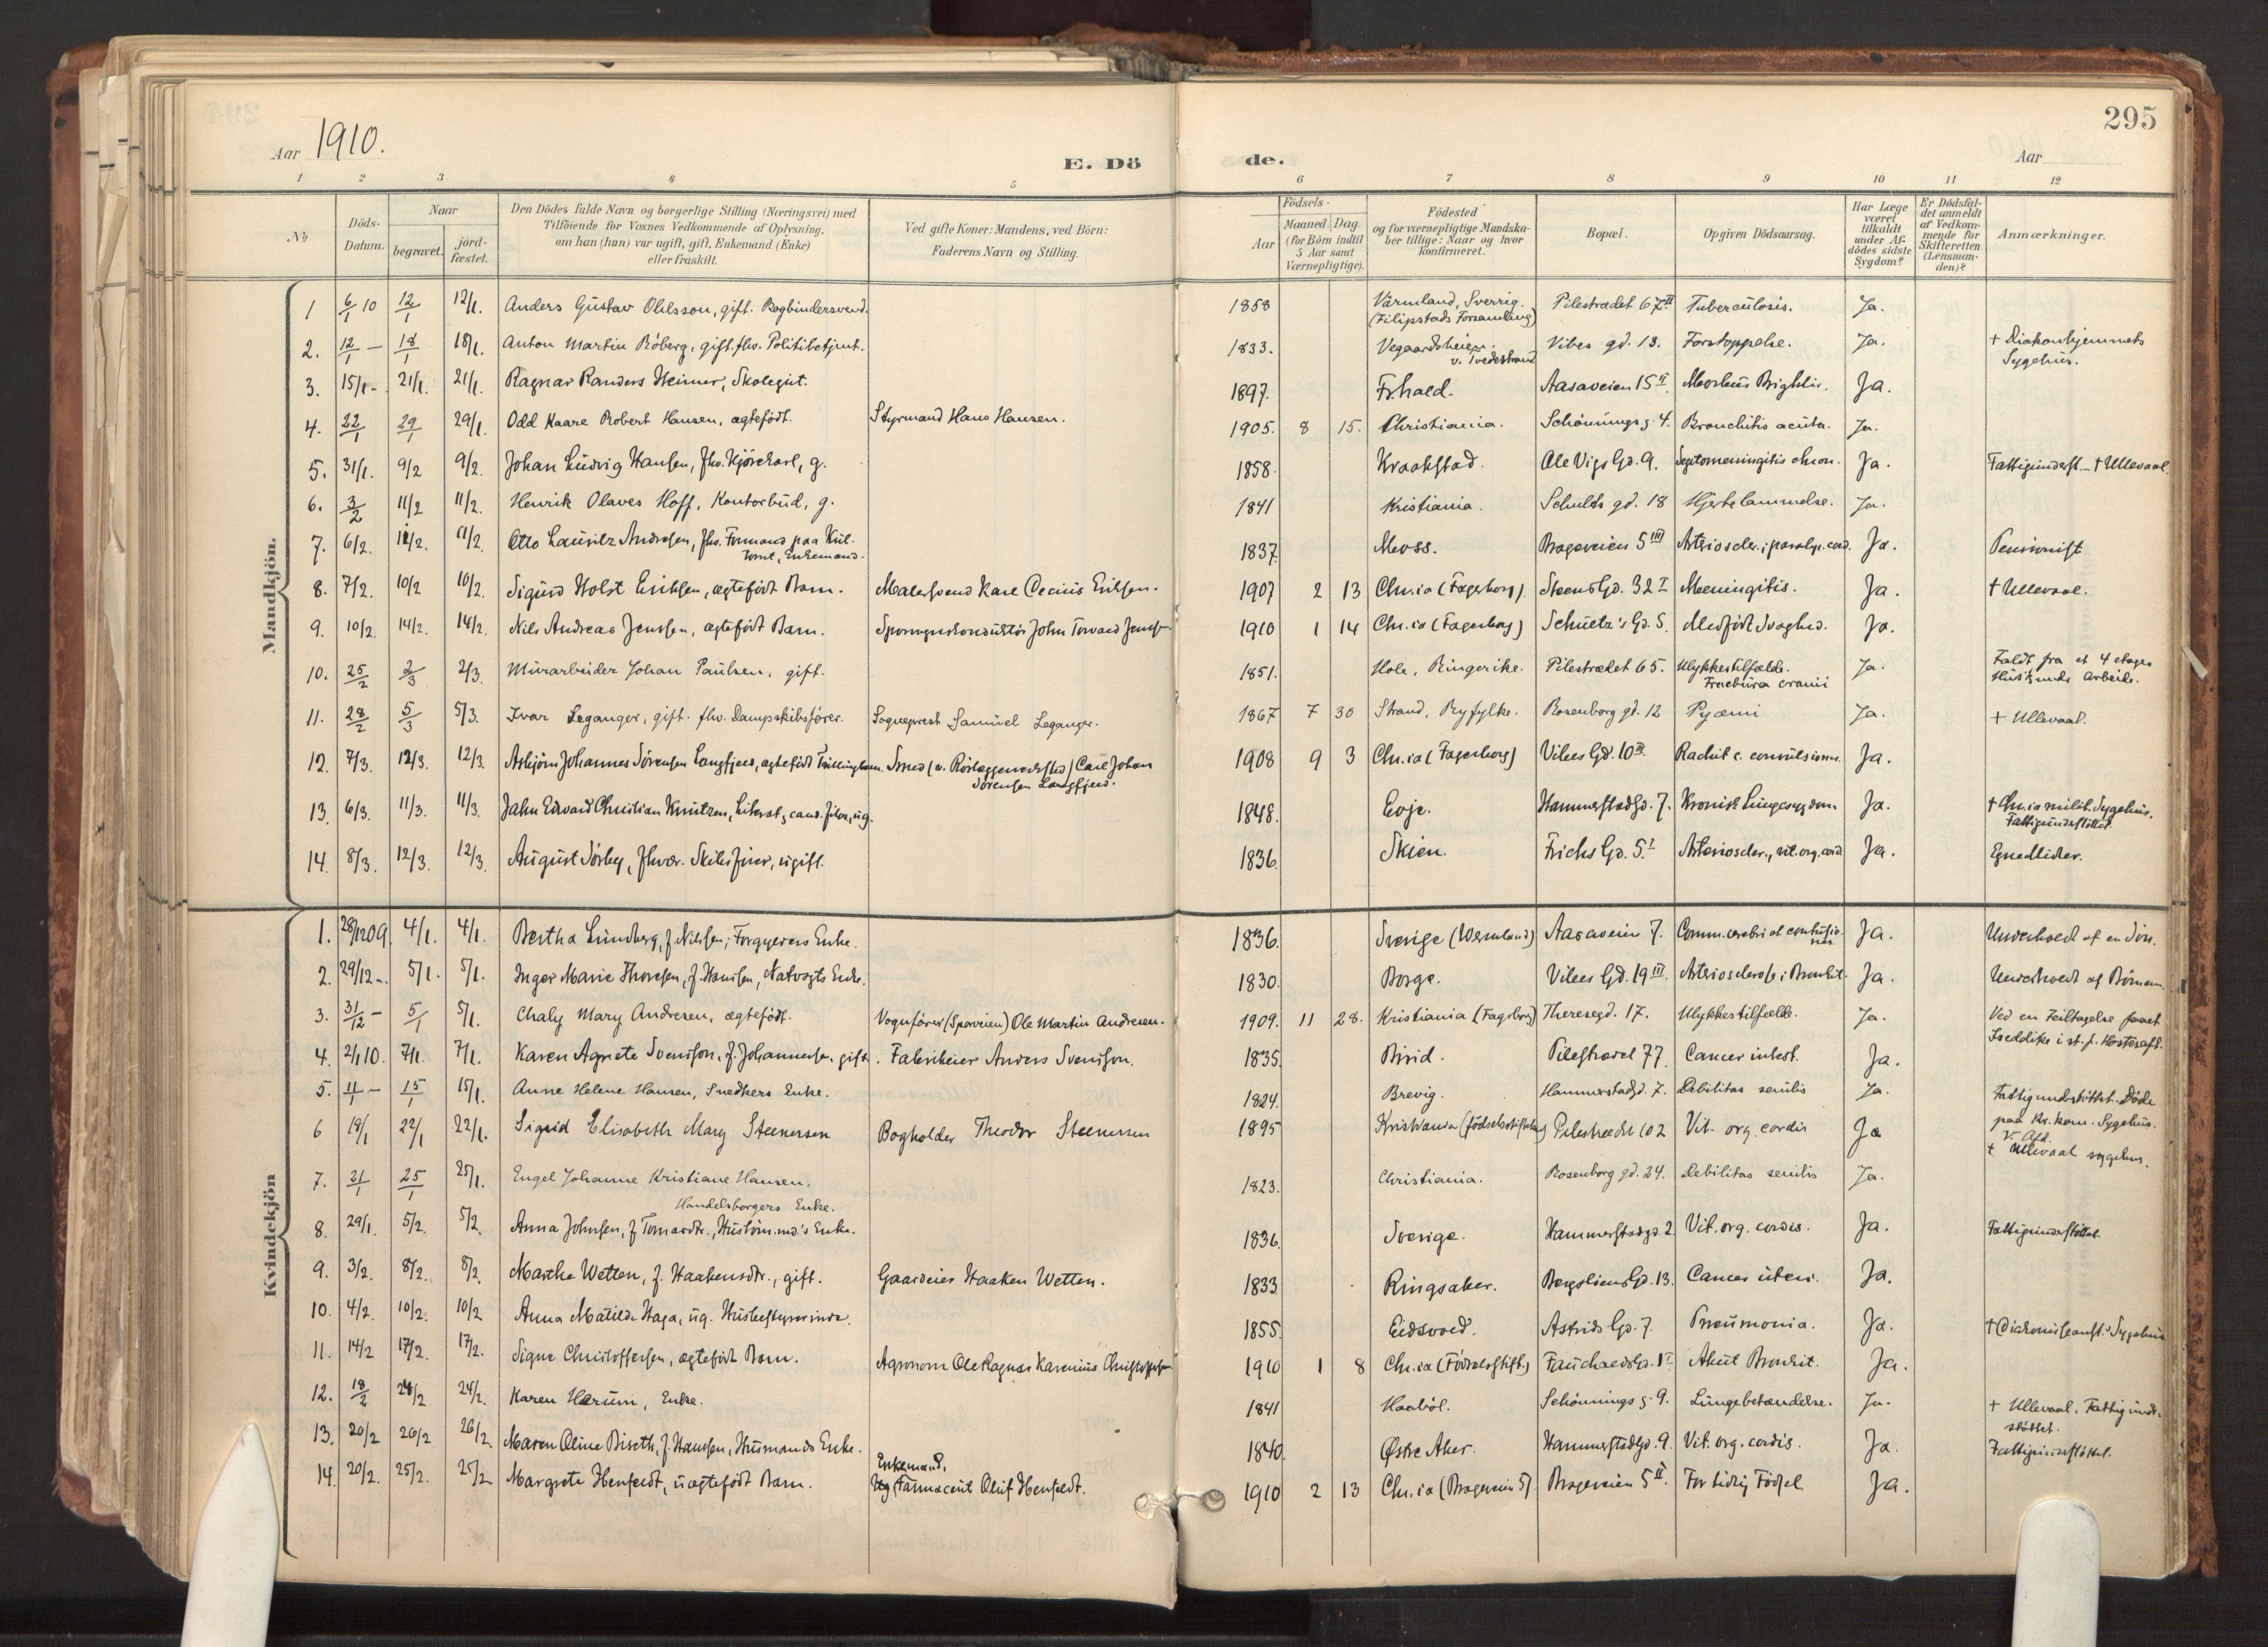 295
Aar 1910.
E. Dö
de.
Aar
1 2 3 4 5 6 7 8 9 10 11 12
№
Döds-Datum.
Naar
begravet.
jord-fæstet.
Den Dödes fulde Navn og borgerlige Stilling (Næringsvei) med
Tilföiende for Voxnes Vedkommende af Oplysning,
om han (han) var ugift, gift, Enkemand (Enke)
eller fraskilt.
Ved gifte Koner: Mandens, ved Börn:
Faderens Navn og Stilling.
Födsels-
Aar
Maaned.
Dag.
(for Börn indtil
5 Aar samt
Værnepligtige).
Födested
og for værnepligtige Mandska-
ber tillige: Naar og hvor
Konfirmeret.
Bopæl.
Opgiven Dödsaarsag.
Har Læge
været
tilkaldt
under Af-
dödes sidste
Sygdom?
Er Dödsfal-
det anmeldt
af Vedkom-
mende for
Skifteretten
(Lensman-
den)?
Anmærkninger.
Mandkjön.
1 6/1 10 12/1 12/1. Anders Gustav Ohlsson, gift. Bogbindersvend. 1858 Värmland, Sverrig. (Filipstads Forsamling) Pilestrædet 67 II Tuberculosis. Ja.
2. 12/1 – 18/1 18/1. Anton Martin Röberg, gift. fhv. Politibetjent. 1833. Vegaardsheien v. Tvedestrand Vibes gd. 13. Forstoppelse. Ja. + Diakonhjemmets Sygehus.
3. 15/1 - 21/1. 21/1. Ragnar Randers Heimer, Skolegut. 1897. Fr.hald. Aasaveien 15 II Morbus Brightii. Ja.
4. 22/1 29/1 29/1. Odd Kaare Robert Hansen, ægtefödt. Styrmand Hans Hansen. 1905. 8 15. Christiania. Schönnings g. 4. Bronchitis acuta. Ja.
5. 31/1. 9/2 9/2. Johan Ludvig Hansen, fhv. Kjörekarl, g. 1858. Kraakstad. Ole Vigs Gd. 9. Leptomeningitis chron. Ja. Fattigunderst. – + Ullevaal
6. 3/2 11/2 11/2. Henrik Olaves Hoff, Kontorbud, g. 1841 Kristiania. Schultz gd. 18 Hjertelammelse. Ja.
7. 6/2. 11/2. 11/2. Otto Lauritz Andresen, fhv. Formand paa Kul-tomt, Enkemand. 1837. Moss. Brageveien 5 III Arterioscler.; paralys. cord. Ja. Pensionist
8. 7/2. 10/2 10/2. Sigurd Holst Eriksen, ægtefödt Barn. Malersvend Karl Eriksen. 1907 2 13 Chr.ia (Fagerborg). Steens Gd. 32 I Meningitis. Ja. + Ullevaal.
9. 10/2. 14/2. 14/2. Nils Andreas Jenssen, ægtefödt Barn. Sporvognskonduktör John Torvald 1910 1 14 Chr.ia (Fagerborg) Schultz's Gd. 5. Medfödt Svaghed. Ja.
10. 25/2 2/3 2/3. Murarbeider Johan Paulsen, gift. 1851. Hole, Ringerike. Pilestrædet 65. Ulykkestilfælde. Fractura cranii Ja. Faldt fra et 4 etages Hus under Arbeide.
11. 28/2 5/3 5/3. Ivar Leganger, gift. fhv. Dampskibsförer. Sogneprest Samuel Leganger. 1867 7 30 Strand, Ryfylke. Rosenborg gd. 12 Pyæmi Ja. + Ullevaal.
12. 7/3. 12/3. 12/3. Asbjörn Johannes Sörensen Langfjeld, ægtefödt Tvillingbarn. Smed (v. Rörlæggerverksted) Carl Johan Sörensen Langfjeld. 1908 9 3 Chr.ia (Fagerborg) Vibes Gd. 10 III. Rachit c. convulsionn. Ja.
13. 6/3. 11/3. 11/3. Jahn Edvard Christian Knutzen, Literat, cand. filos, ug. 1848. Evje. Hammerstadgd. 7. Kronisk Lungesygdom Ja. + Chr.ia milit. Sygehus. Fattigunderstöttet.
14. 8/3. 12/3. 12/3. August Sörby, fhvær. Skibsförer, ugift. 1836. Skien. Frichs Gd. 5. I Arterioscler., vit. org. cord Ja. Egne Midler.
Kvindekjön
1. 28/12 09. 4/1. 4/1. Bertha Lundberg, f. Nilsen, Forgyllers Enke. 1836. Sverige (Wermland) Aasaveien 7. Comm. cerebri et Ja. Underholdt af en Sön.
2. 29/12 -. 5/1. 5/1. Inger Marie Thoresen, f. Hansen, Natvogts Enke. 1830. Borge. Vibes Gd. 19 III. Arteriosclerose; Bronkit. Ja. Underholdt af Börnene.
3. 31/12 – 5/1 5/1. Chaly Mary Andresen, ægtefödt. Vognförer (Sporveien) Ole Martin Andresen. 1909. 11 28. Kristiania (Fagerborg) Theresegd. 17. Ulykkestilfælde. Ja. Ved en Feiltagelse faaet Iseddike i st. f. Hostesaft.
4. 2/1 10. 7/1. 7/1. Karen Agnete Svensson, f. Johannesen, gift. Fabrikeier Anders Svensson. 1835. Birid. Pilestræd 77. Cancer intest. Ja.
5. 11/1 – 15/1 15/1. Anne Helene Hansen, Snedkers Enke. 1824. Brevig. Hammerstadgd. 7. Debilitas senilis Ja. Fattigunderstöttet. Döde paa Kr. kom. Sygehus. V. Afd.
6 19/1 22/1 22/1. Sigrid Elisabeth Mary Steenersen Bogholder Theodor Steenersen 1895 Kristiania (Födselsstiftelsen) Pilestrædet 102 Vit. org. cordis Ja + Ullevaal sygehus.
7. 31/1 25/1 25/1. Engel Johanne Kristiane Hansen, Handelsborgers Enke. 1823. Christiania. Rosenborg gd. 24. Debilitas senilis Ja.
8. 29/1. 5/2. 5/2. Anna Johnsen, f. Enke. 1836. Sverige. Hammerstadgd. 2. Vit. org. cordis. Ja. Fattigunderstöttet.
9. 3/2. 8/2. 8/2. Marthe Wetten, f. Haakensdtr., gift. Gaardeier Haaken Wetten. 1833. Ringsaker. Bergsliens Gd. 13. Cancer uteri. Ja.
10. 4/2. 10/2. 10/2 Anna Matilde Haga, ug. Husbestyrerinde. 1855. Eidsvold. Astrids Gd. 7. Pneumonia. Ja. + Diakonisseanst. Sygehus
11. 14/2 17/2. 17/2. Signe Christoffersen, ægtefödt Barn. Agronom Ole Ragnar Karenius Christoffersen 1910 1 8 Chr.ia (Födselsstift.) Fauchaldsgd. 1 I Akut Bronkit. Ja.
12. 18/2 24/2 24/2. Karen Herum, Enke. 1841 Haaböl. Schönnings g. 9. Lungebetændelse. Ja. + Ullevaal. Fattigunderstöttet.
13. 20/2 26/2 26/2. Maren Oline Biseth, f. Hansen, Husmands Enke. 1840. Østre Aker. Hammerstadgd. 9. Vit. org. cordis. Ja. Fattigunderstöttet.
14. 20/2. 25/2. 25/2 Margrete Henfeldt, uægtefödt Barn. Enkemand, Farmaceut Oluf Henfeldt. 1910 2 13 Chr.ia (Brageveien 5) Brageveien 5 II. For tidlig Födsel Ja.